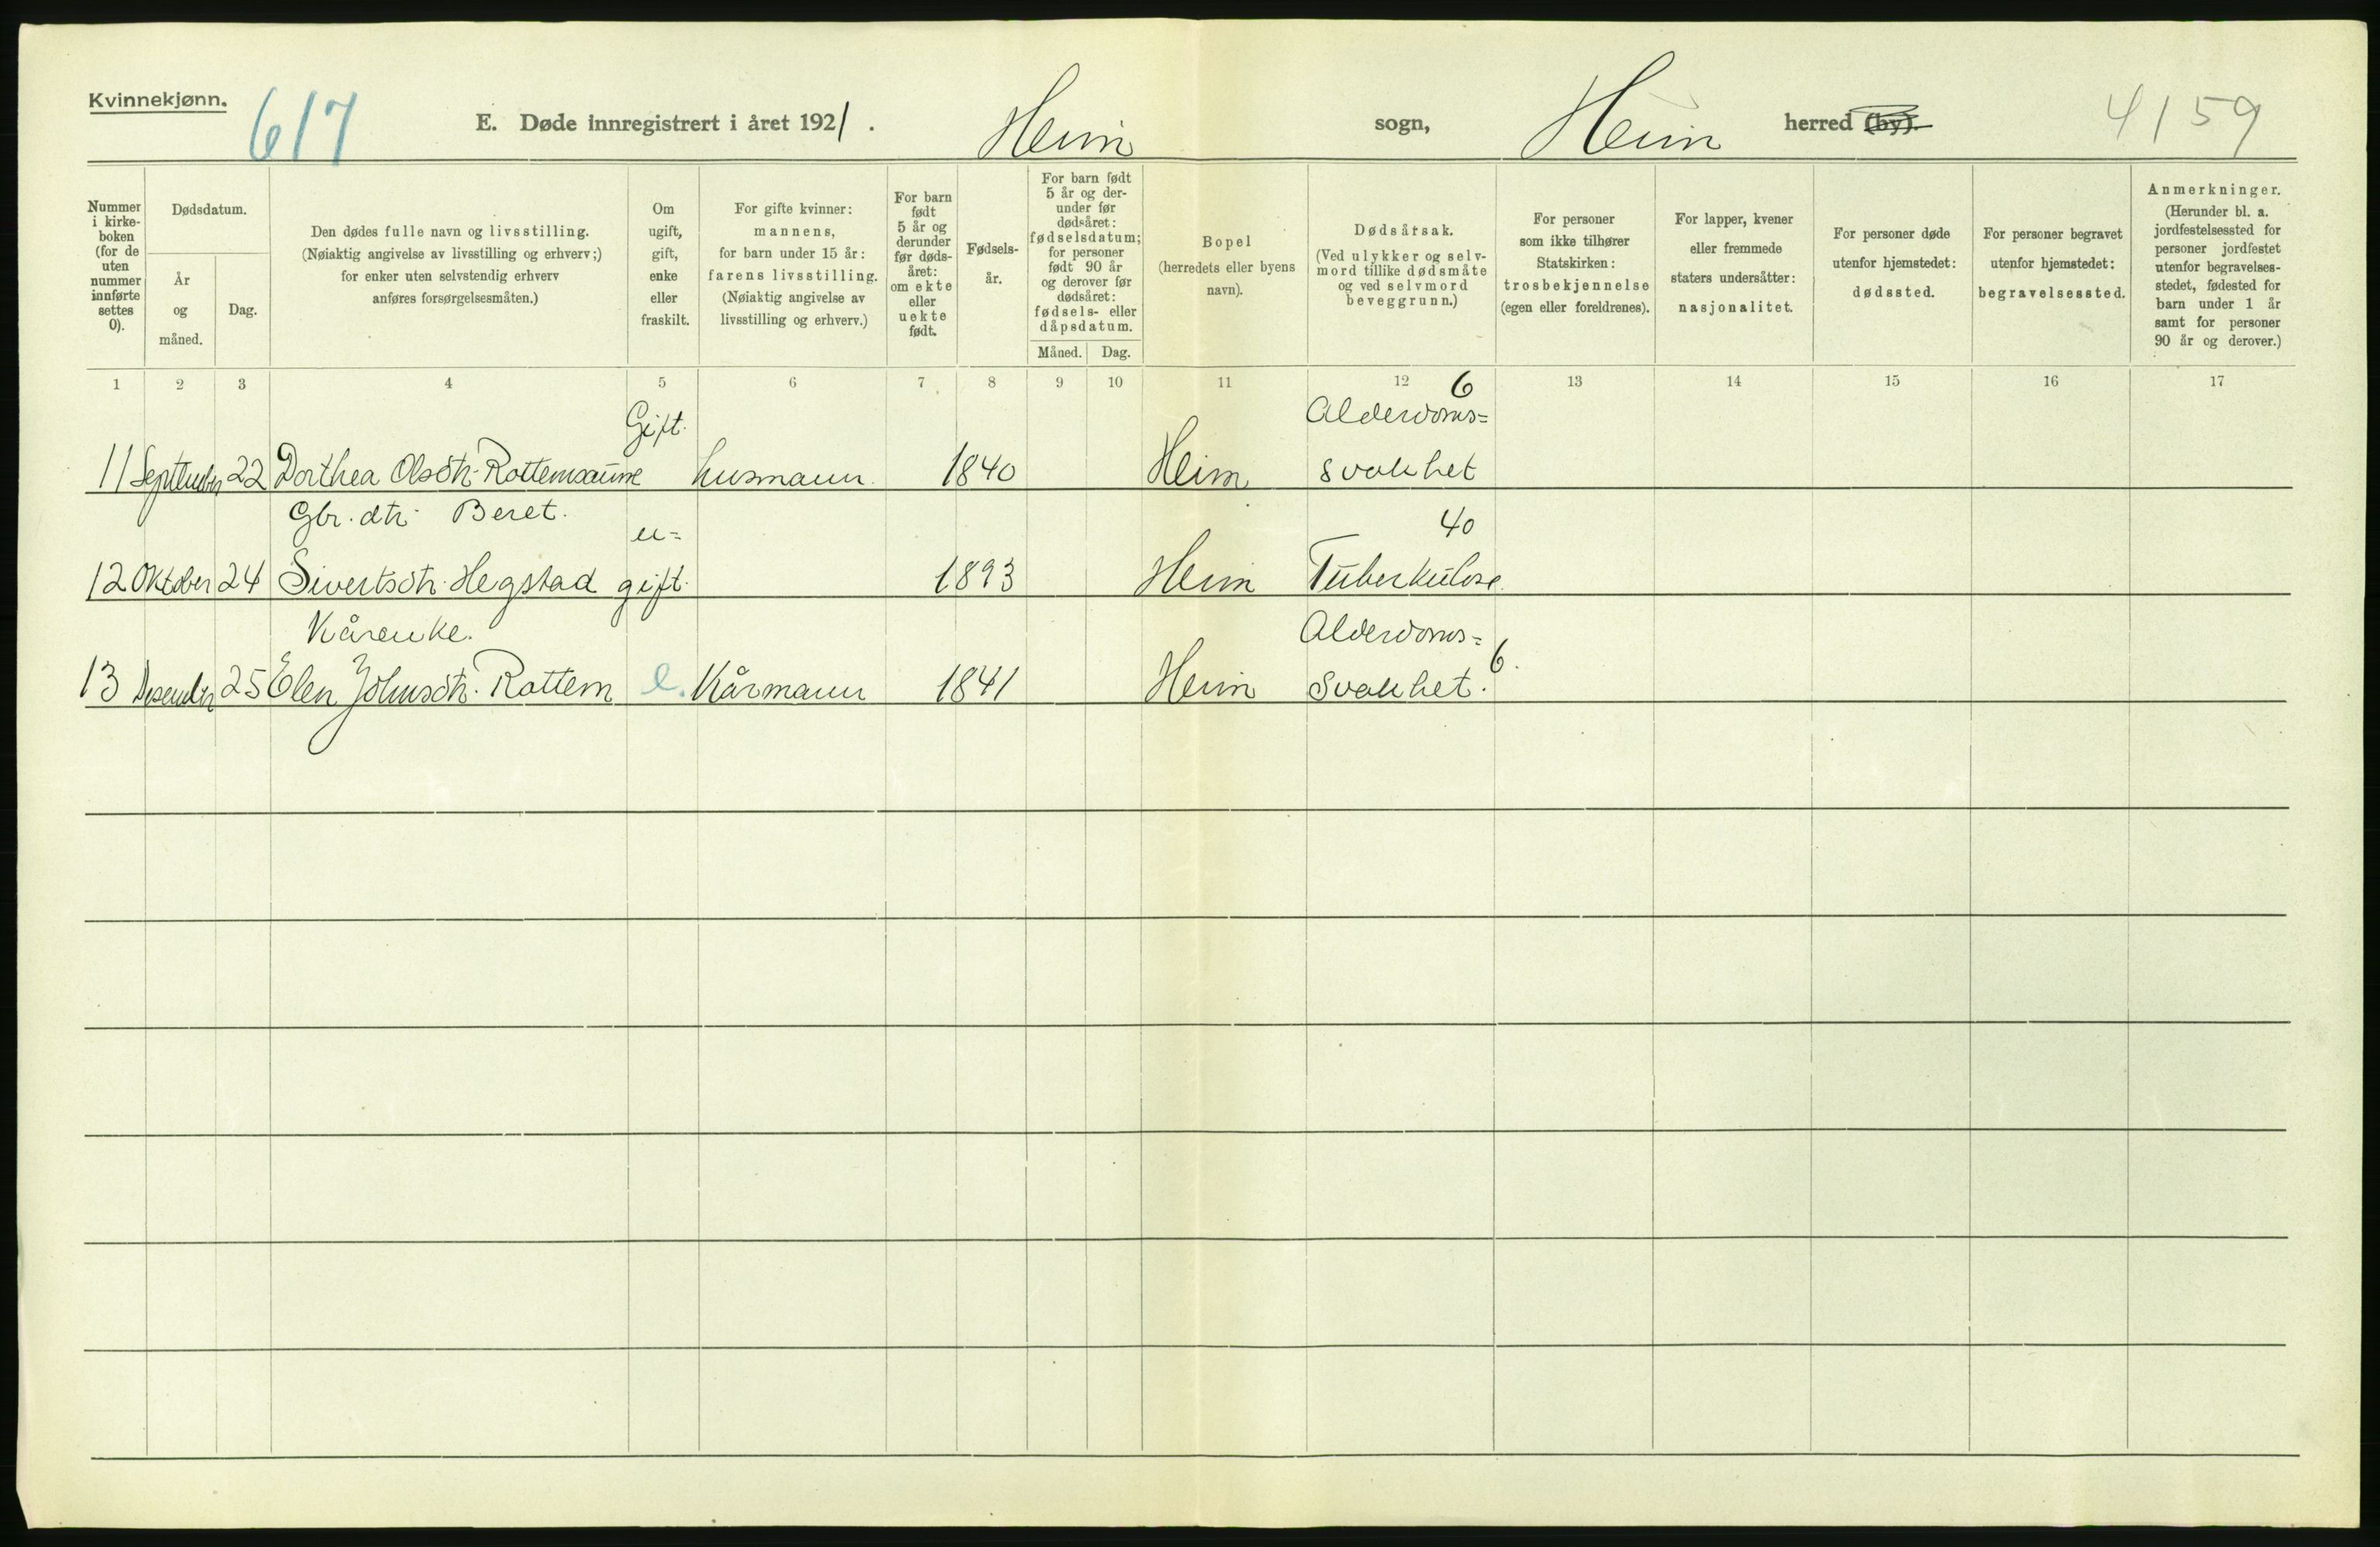 Kvinnekjønn.
617
E. Døde innregistrert i året 1921.
Heim sogn, Heim herred (by).
4159
Nummer i kirke-boken (for de uten nummer innførte settes 0).
Dødsdatum.
År og måned.
Dag.
Den dødes fulle navn og livsstilling.
(Nøiaktig angivelse av livsstilling og erhverv;)
for enker uten selvstendig erhverv
anføres forsørgelsesmåten.)
Om ugift, gift, enke eller fraskilt.
For gifte kvinner:
mannens,
for barn under 15 år:
farens livsstilling.
(Nøiaktig angivelse av
livsstilling og erhverv.)
For barn født 5 år og derunder før døds-året: om ekte eller uekte født.
Fødsels-år.
For barn født 5 år og der-under før dødsåret: fødselsdatum; for personer født 90 år og derover før dødsåret: fødsels- eller dåpsdatum.
Måned. Dag.
Bopel
(herredets eller byens
navn).
Dødsårsak.
(Ved ulykker og selv-
mord tillike dødsmåte
og ved selvmord
beveggrunn.)
For personer
som ikke tilhører
Statskirken:
trosbekjennelse
(egen eller foreldrenes).
For lapper, kvener
eller fremmede
staters undersåtter:
nasjonalitet.
For personer døde
utenfor hjemstedet:
dødssted.
For personer begravet
utenfor hjemstedet:
begravelsessted.
Anmerkninger.
(Herunder bl. a.
jordfestelsessted for
personer jordfestet
utenfor begravelses-
stedet, fødested for
barn under 1 år
samt for personer
90 år og derover.)
1 2 3 4 5 6 7 8 9 10 11 12 13 14 15 16 17
6
Gift. Alderdoms=
11 September 22 Dorthea Olsdtr. Rottemsaune husmann. 1840 Heim svakhet
Gbr. dtr. Beret. u= 40
12 Oktober 24 Sivertsdtr. Hegstad gift. 1893 Heim Tuberkulose.
Kårenke. Alderdoms=
13 Desember 25 Elen Johnsdtr. Rottem e. Kårmann 1841 Heim Svakhet. 6.